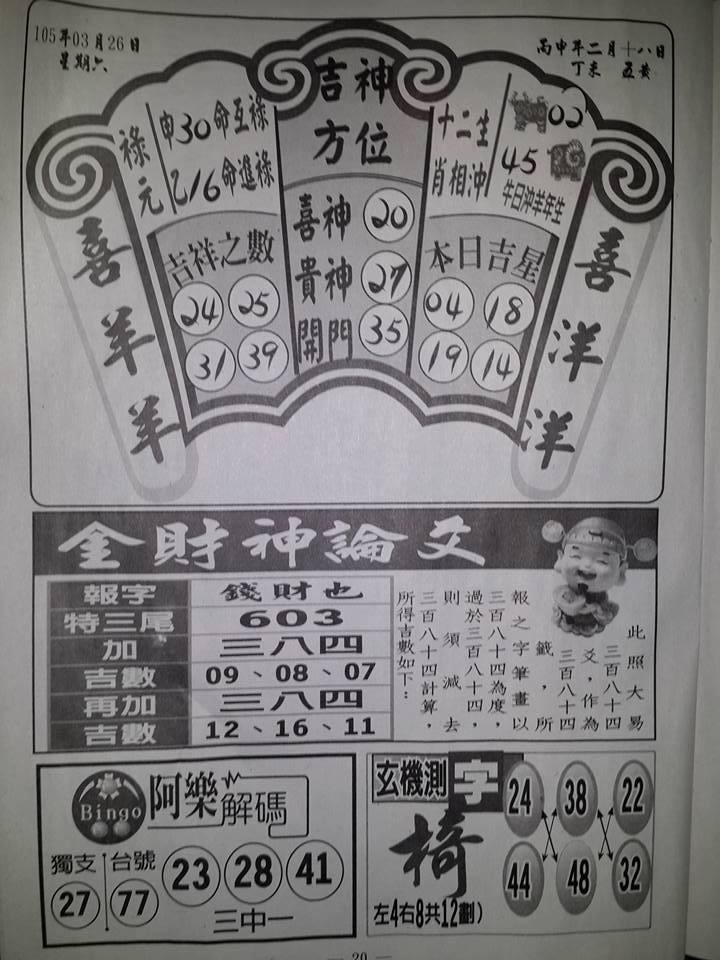 105年03月26日
星期六
丙申年二月十八日
丁未 五黃
吉神
方位
喜神 20
貴神 27
開門 35
祿元
申30命互祿
乙16命進祿
吉祥之數
24 25
31 39
十二生
肖相沖
02
45
牛日沖羊年生
本日吉星
04 18
19 14
喜羊羊
喜洋洋
金財神論爻
報字 錢財也
特三尾 603
加 三八四
吉數 09、08、07
再加 三八四
吉數 12、16、11
此照大易
三百八十四
爻，作為
三百八十四
籤，所
報之字筆畫以
三百八十四為度，
過於三百八十四，
則須減去
三百八十四計算，
所得吉數如下：
Bingo
阿樂解碼
獨支 27
台號 77
23 28 41
三中一
玄機測字
椅
左4右8共12劃）
24 38 22
44 48 32
— 20 —